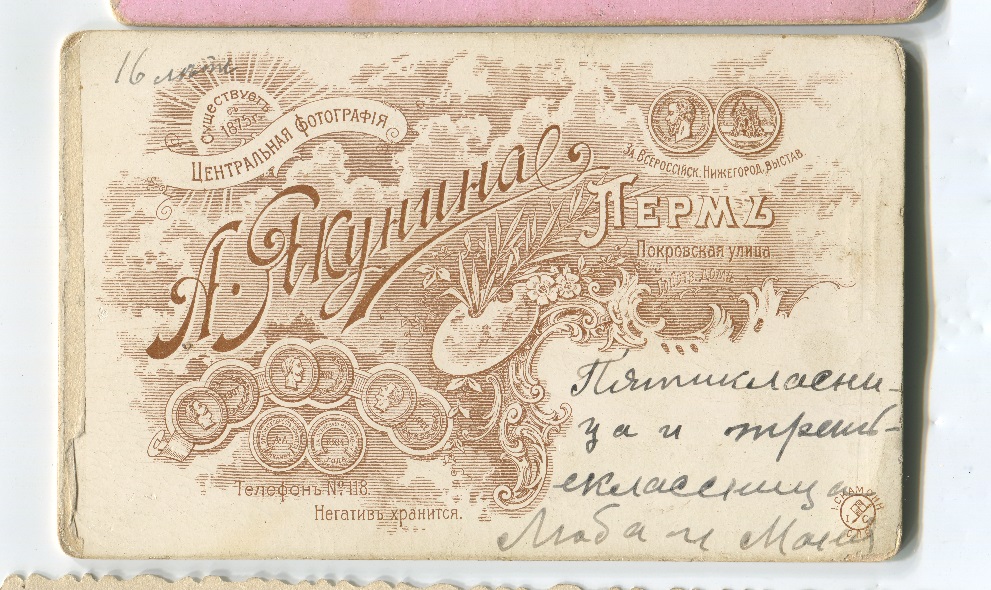 16 лет
Существуетъ
1875 г.
Центральная фотографія
А. Якунина
За Всероссійск. Нижегород. Выстав.
Пермь
Покровская улица
Телефонъ № 118.
Негативъ хранится.
Пятикласни-
ца и треть-
еклассница
Люба и Маня